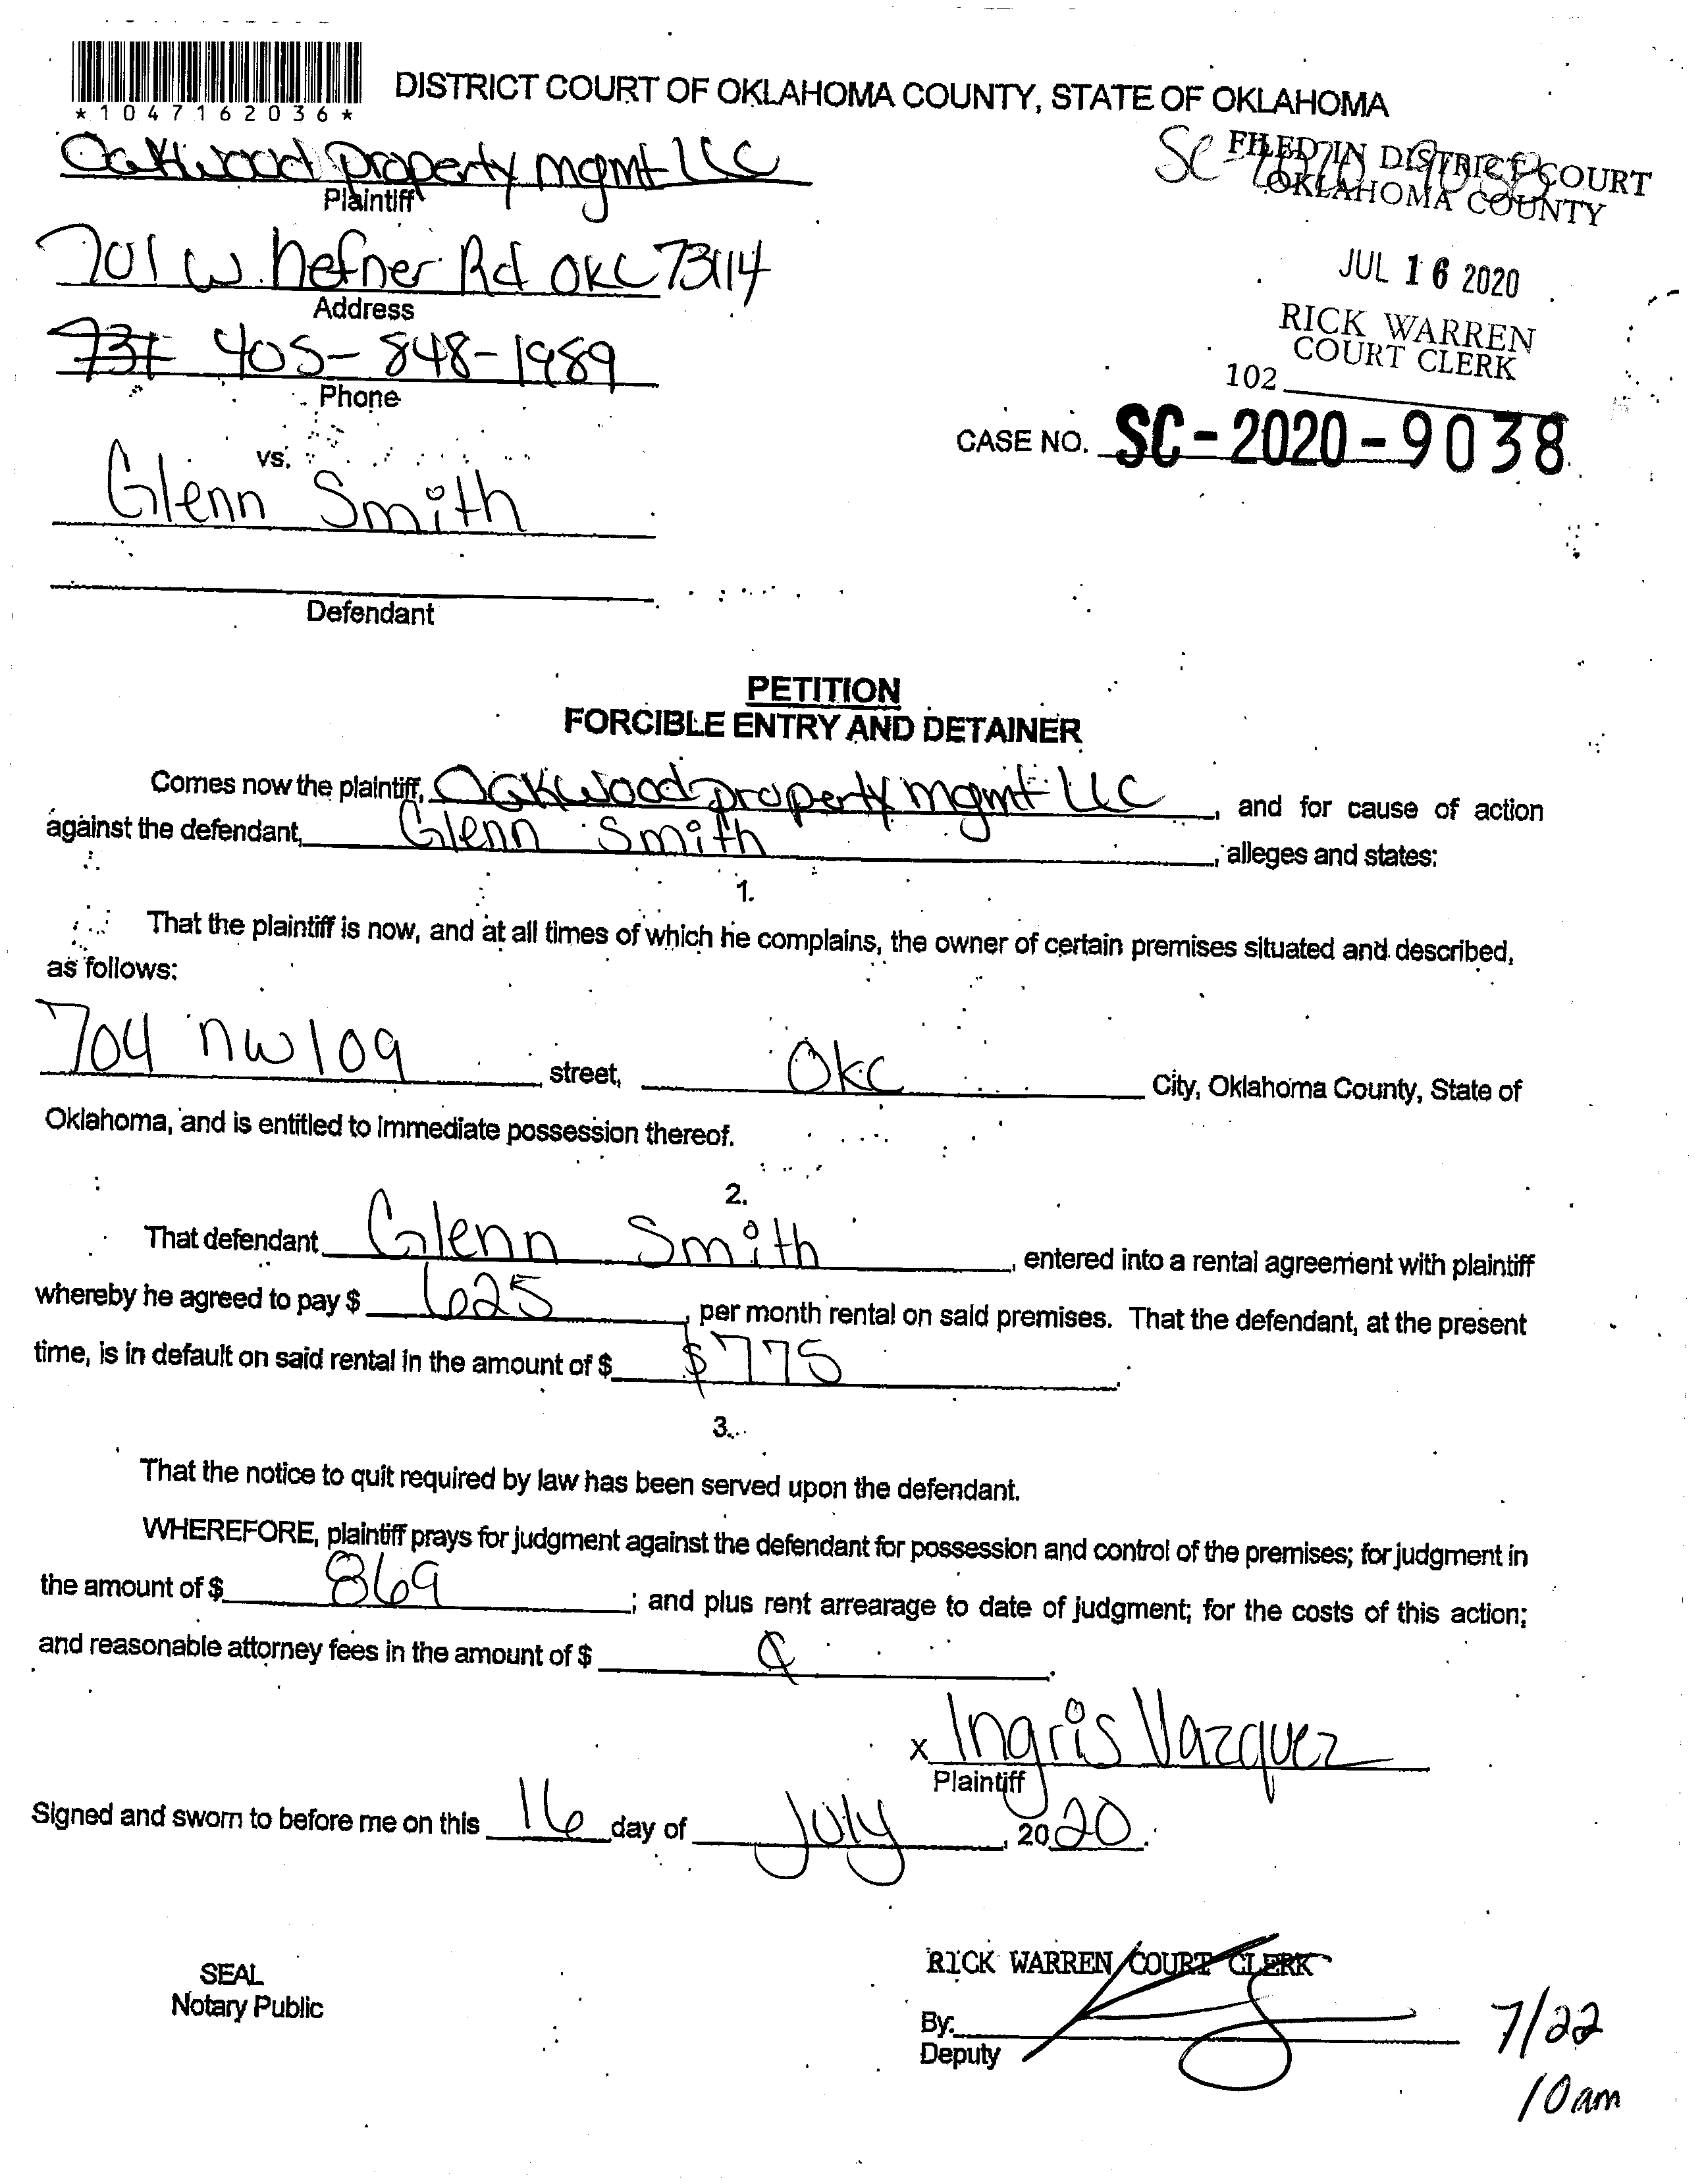 *1047162036*
DISTRICT COURT OF OKLAHOMA COUNTY, STATE OF OKLAHOMA
Oakwood property mgmt LLC
Plaintiff
SC-2020-9038
FILED IN DISTRICT COURT
OKLAHOMA COUNTY
701 W. hefner Rd OKC 73114
Address
JUL 16 2020
RICK WARREN
COURT CLERK
102
405-848-1989
Phone
CASE NO. SC-2020-9038
vs.
Glenn Smith
Defendant
PETITION
FORCIBLE ENTRY AND DETAINER
Comes now the plaintiff, Oakwood property mgmt LLC, and for cause of action
against the defendant, Glenn Smith, alleges and states:
1.
That the plaintiff is now, and at all times of which he complains, the owner of certain premises situated and described,
as follows:
704 nw 109 street, OKC City, Oklahoma County, State of
Oklahoma, and is entitled to immediate possession thereof.
2.
That defendant Glenn Smith, entered into a rental agreement with plaintiff
whereby he agreed to pay $ 625, per month rental on said premises. That the defendant, at the present
time, is in default on said rental in the amount of $ $775.
3.
That the notice to quit required by law has been served upon the defendant.
WHEREFORE, plaintiff prays for judgment against the defendant for possession and control of the premises; for judgment in
the amount of $ 869; and plus rent arrearage to date of judgment; for the costs of this action;
and reasonable attorney fees in the amount of $
x Ingris Vazquez
Plaintiff
Signed and sworn to before me on this 16 day of July, 2020.
SEAL
Notary Public
RICK WARREN COURT CLERK
By:
Deputy
7/22
10am